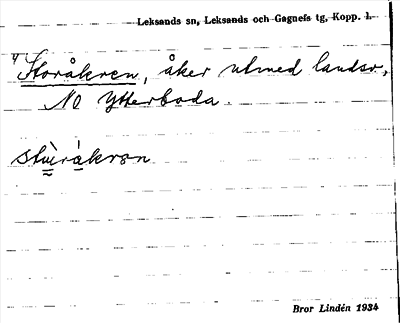 Leksands sn, Leksands och Gagnefs tg, Kopp. l.
"Storåkren, åker utmed landsv.
NO Ytterboda.
stùråkrən
Bror Lindén 1934